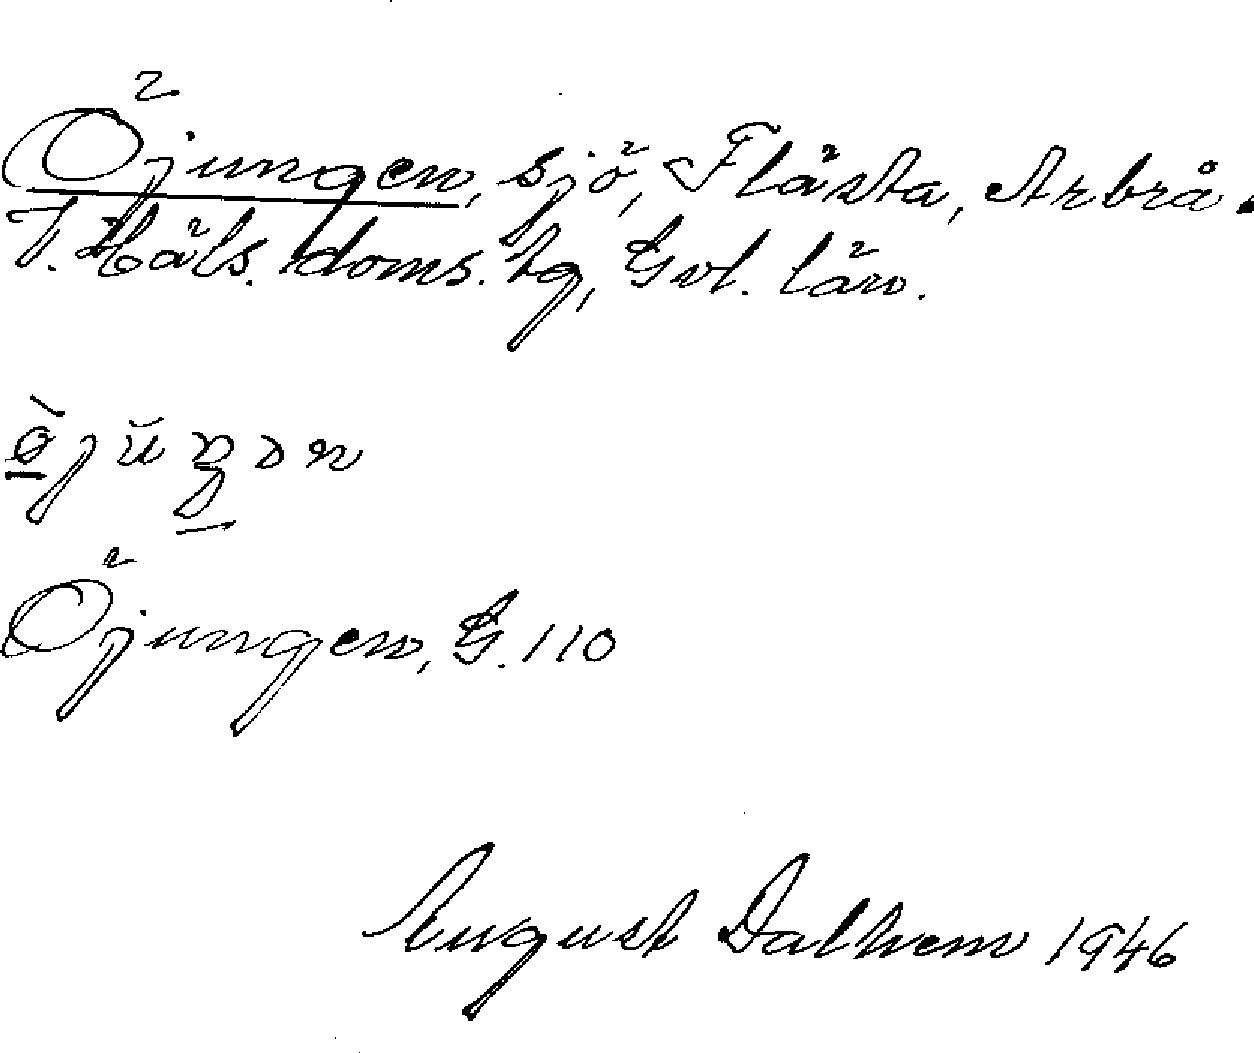 Öjungen, sjö, Flästa, Arbrå.
V. Häls. doms. tg, Gvl. län.
öjŭŋən
Öjungen, G. 110
August Dalhem 1946